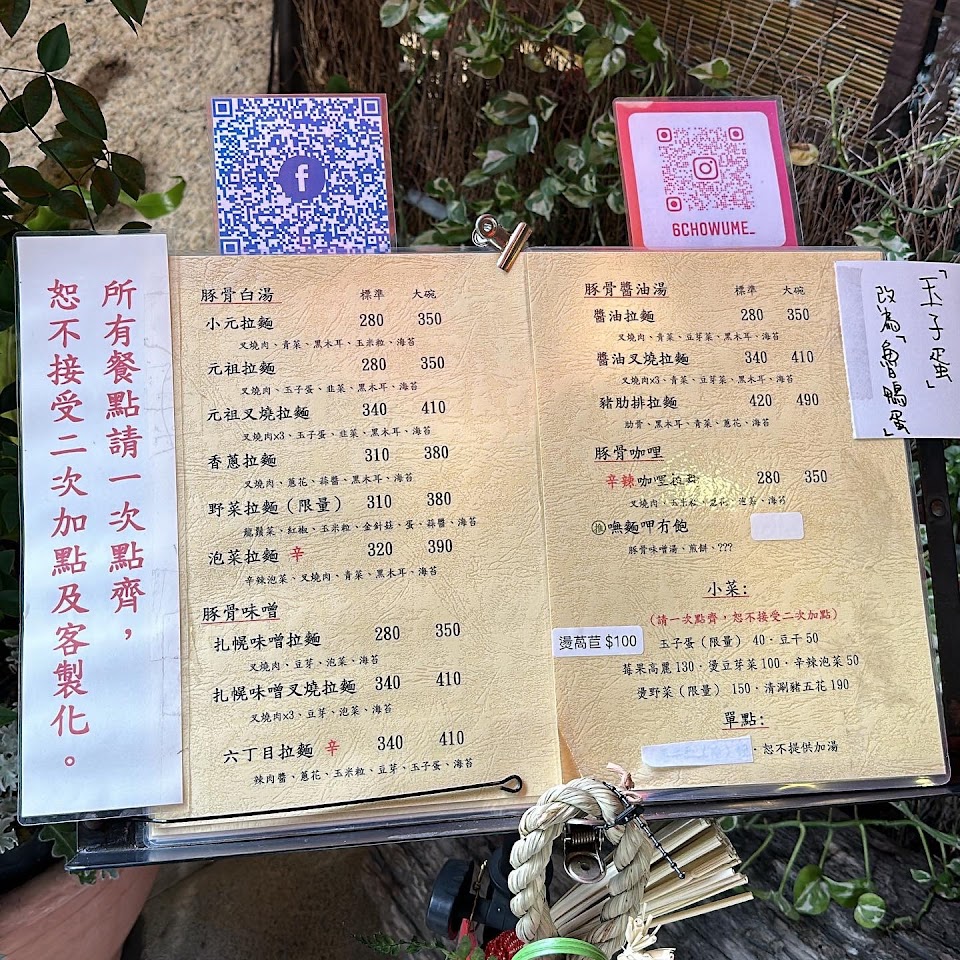 f
6CHOWUME_
所有餐點請一次點齊，
恕不接受二次加點及客製化。
豚骨白湯 標準 大碗
小元拉麵 280 350
叉燒肉、青菜、黑木耳、玉米粒、海苔
元祖拉麵 280 350
叉燒肉、玉子蛋、韭菜、黑木耳、海苔
元祖叉燒拉麵 340 410
叉燒肉x3、玉子蛋、韭菜、黑木耳、海苔
香蔥拉麵 310 380
叉燒肉、蔥花、蒜醬、黑木耳、海苔
野菜拉麵（限量） 310 380
龍鬚菜、紅椒、玉米粒、金針菇、蛋、蒜醬、海苔
泡菜拉麵 辛 320 390
辛辣泡菜、叉燒肉、青菜、黑木耳、海苔
豚骨味噌
扎幌味噌拉麵 280 350
叉燒肉、豆芽、泡菜、海苔
扎幌味噌叉燒拉麵 340 410
叉燒肉x3、豆芽、泡菜、海苔
六丁目拉麵 辛 340 410
辣肉醬、蔥花、玉米粒、豆芽、玉子蛋、海苔
豚骨醬油湯 標準 大碗
醬油拉麵 280 350
叉燒肉、青菜、豆芽菜、黑木耳、海苔
醬油叉燒拉麵 340 410
叉燒肉x3、青菜、豆芽菜、黑木耳、海苔
豬肋排拉麵 420 490
肋骨、黑木耳、青菜、蔥花、海苔
豚骨咖哩
辛辣咖哩拉麵 280 350
叉燒肉、玉米粒、蔥花、泡菜、海苔
推嘸麵呷冇飽
豚骨味噌湯、煎餅、???
小菜:
（請一次點齊，恕不接受二次加點）
燙萵苣 $100
玉子蛋（限量） 40．豆干50
莓果高麗130．燙豆芽菜100．辛辣泡菜50
燙野菜（限量） 150．清涮豬五花190
單點:
．恕不提供加湯
「玉子蛋」
改為「魯鴨蛋」